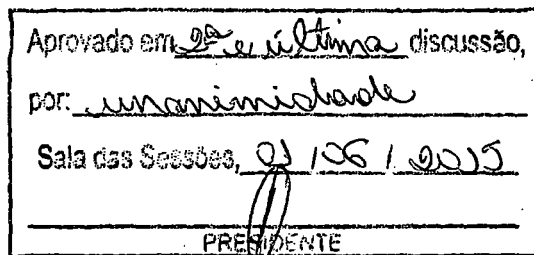 Aprovado em 2ª e última discussão,
por: unanimidade
Sala das Sessões, 01 / 06 / 2015
PRESIDENTE